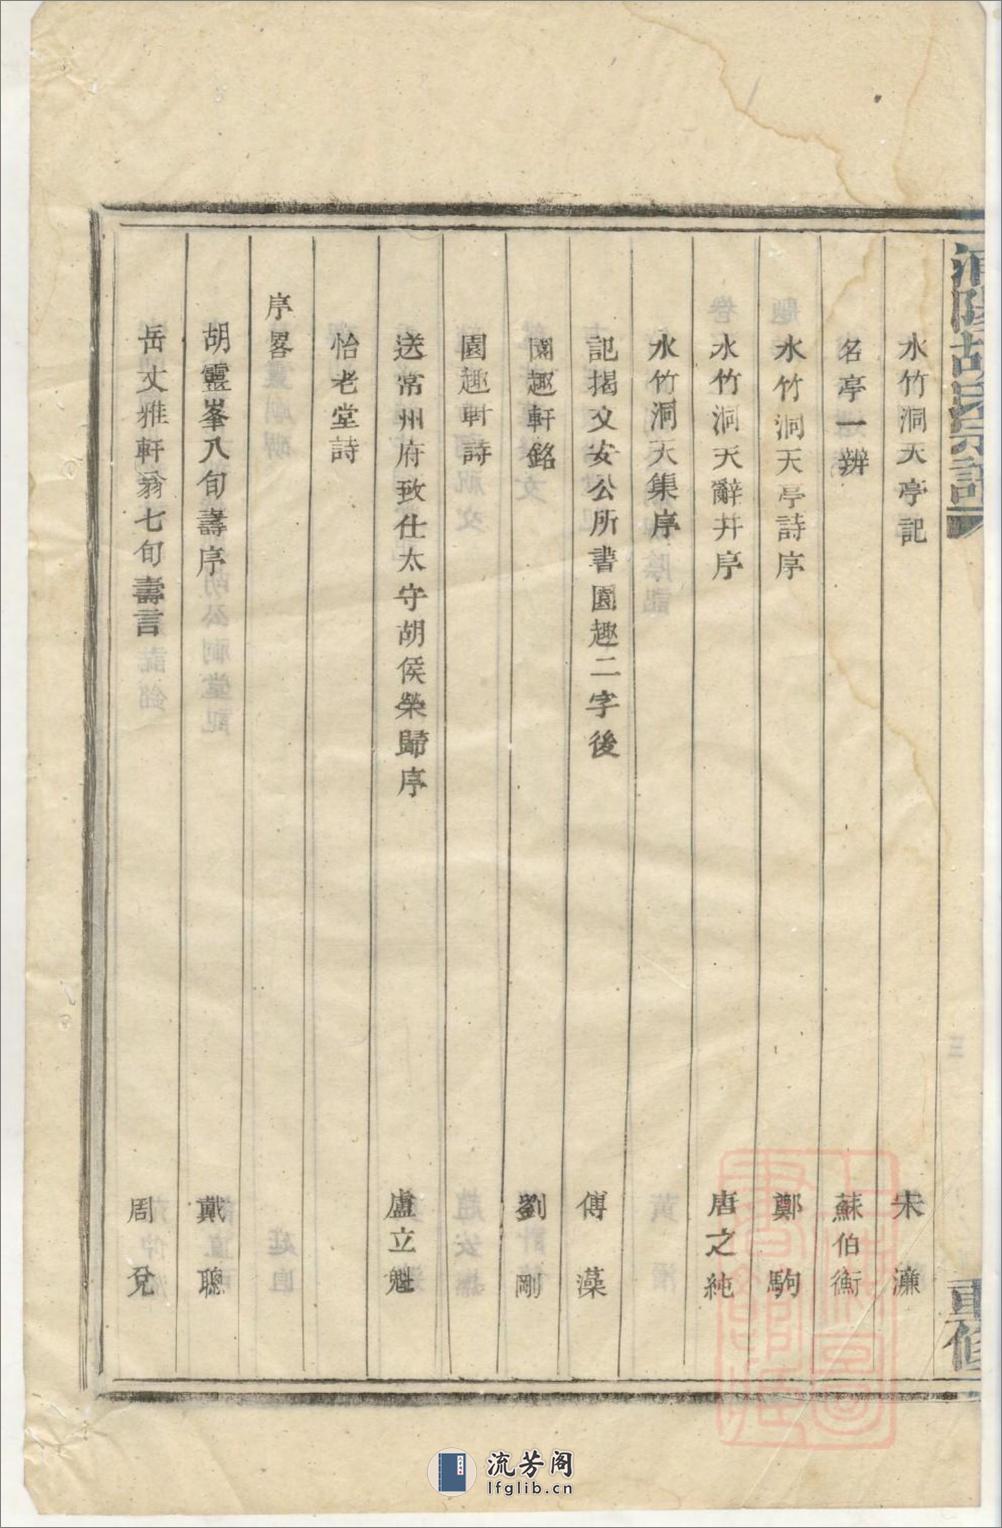 胡氏宗譜
重修
水竹洞天亭記 宋濂
名亭一辨 蘇伯衡
水竹洞天亭詩序 鄭駒
水竹洞天辭幷序 唐之純
水竹洞天集序
記揭文安公所書園趣二字後 傅藻
園趣軒銘 劉剛
園趣軒詩
送常州府致仕太守胡侯榮歸序 盧立魁
怡老堂詩
序畧
胡靈峯八旬壽序 戴聰
岳丈雅軒翁七旬壽言 周兌
流芳阁
lfglib.cn